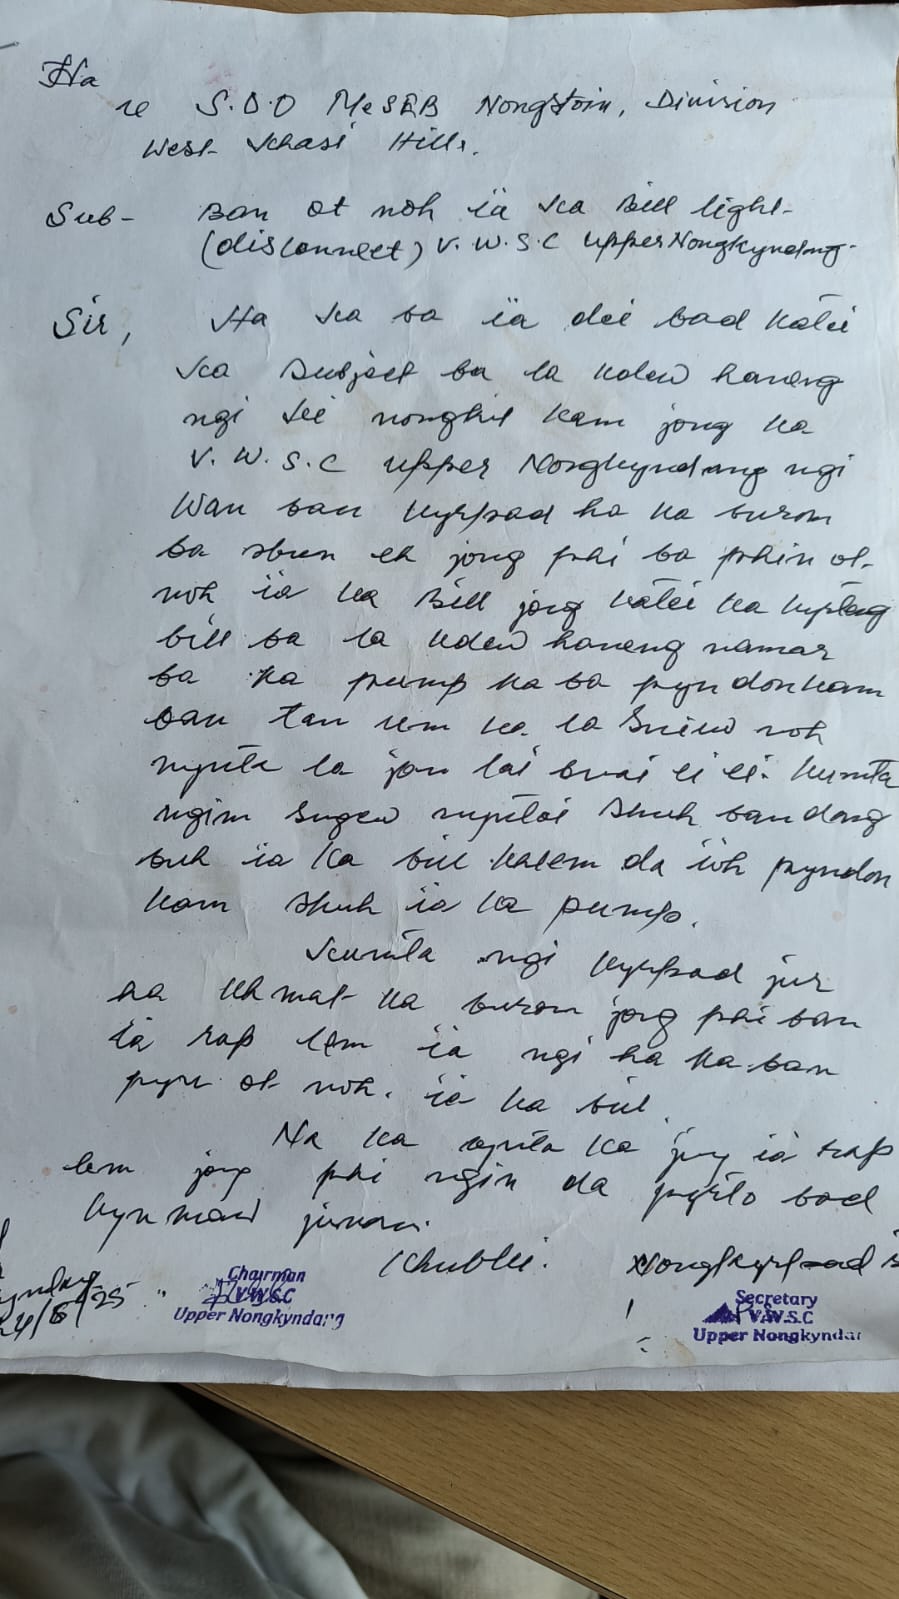 Ha
u S.D.O MeSEB Nongstoin, Division
West Khasi Hills.
Sub- Ban ot noh ïa ka Bill light
(disconnect) V.W.S.C Upper Nongkyndang.
Sir, Ha ka ba ïa dei bad katei
ka Subject ba la kdew haneng
ngi ki nongbat kam jong ka
V.W.S.C Upper Nongkyndang ngi
wan ban kyrpad ha ka burom
ba sbun eh jong phi ba phin ot
noh ïa ka Bill jong katei ka kyrteng
bill ba la kdew haneng namar
ba ka pump ka ba pyndonkam
ban tan um ka la sniew noh
mynta la jan lai bnai ei ei. Kumta
ngim sngew myntoi shuh ban dang
buh ïa ka bill khlem da ïoh pyndon
kam shuh ïa ka pump.
Kumta ngi kyrpad jur
ha khmat ka burom jong phi ban
ïa rap lem ïa ngi ha ka ban
pyn ot noh. ïa ka bill.
Na ka bynta ka jing ïa rap
lem jong phi ngin da pyrto bad
kynmaw junom.
Khublei. Nongkyrpad
24/6/25 Chairman
V.W.S.C
Upper Nongkyndang
Secretary
V.W.S.C
Upper Nongkyndan